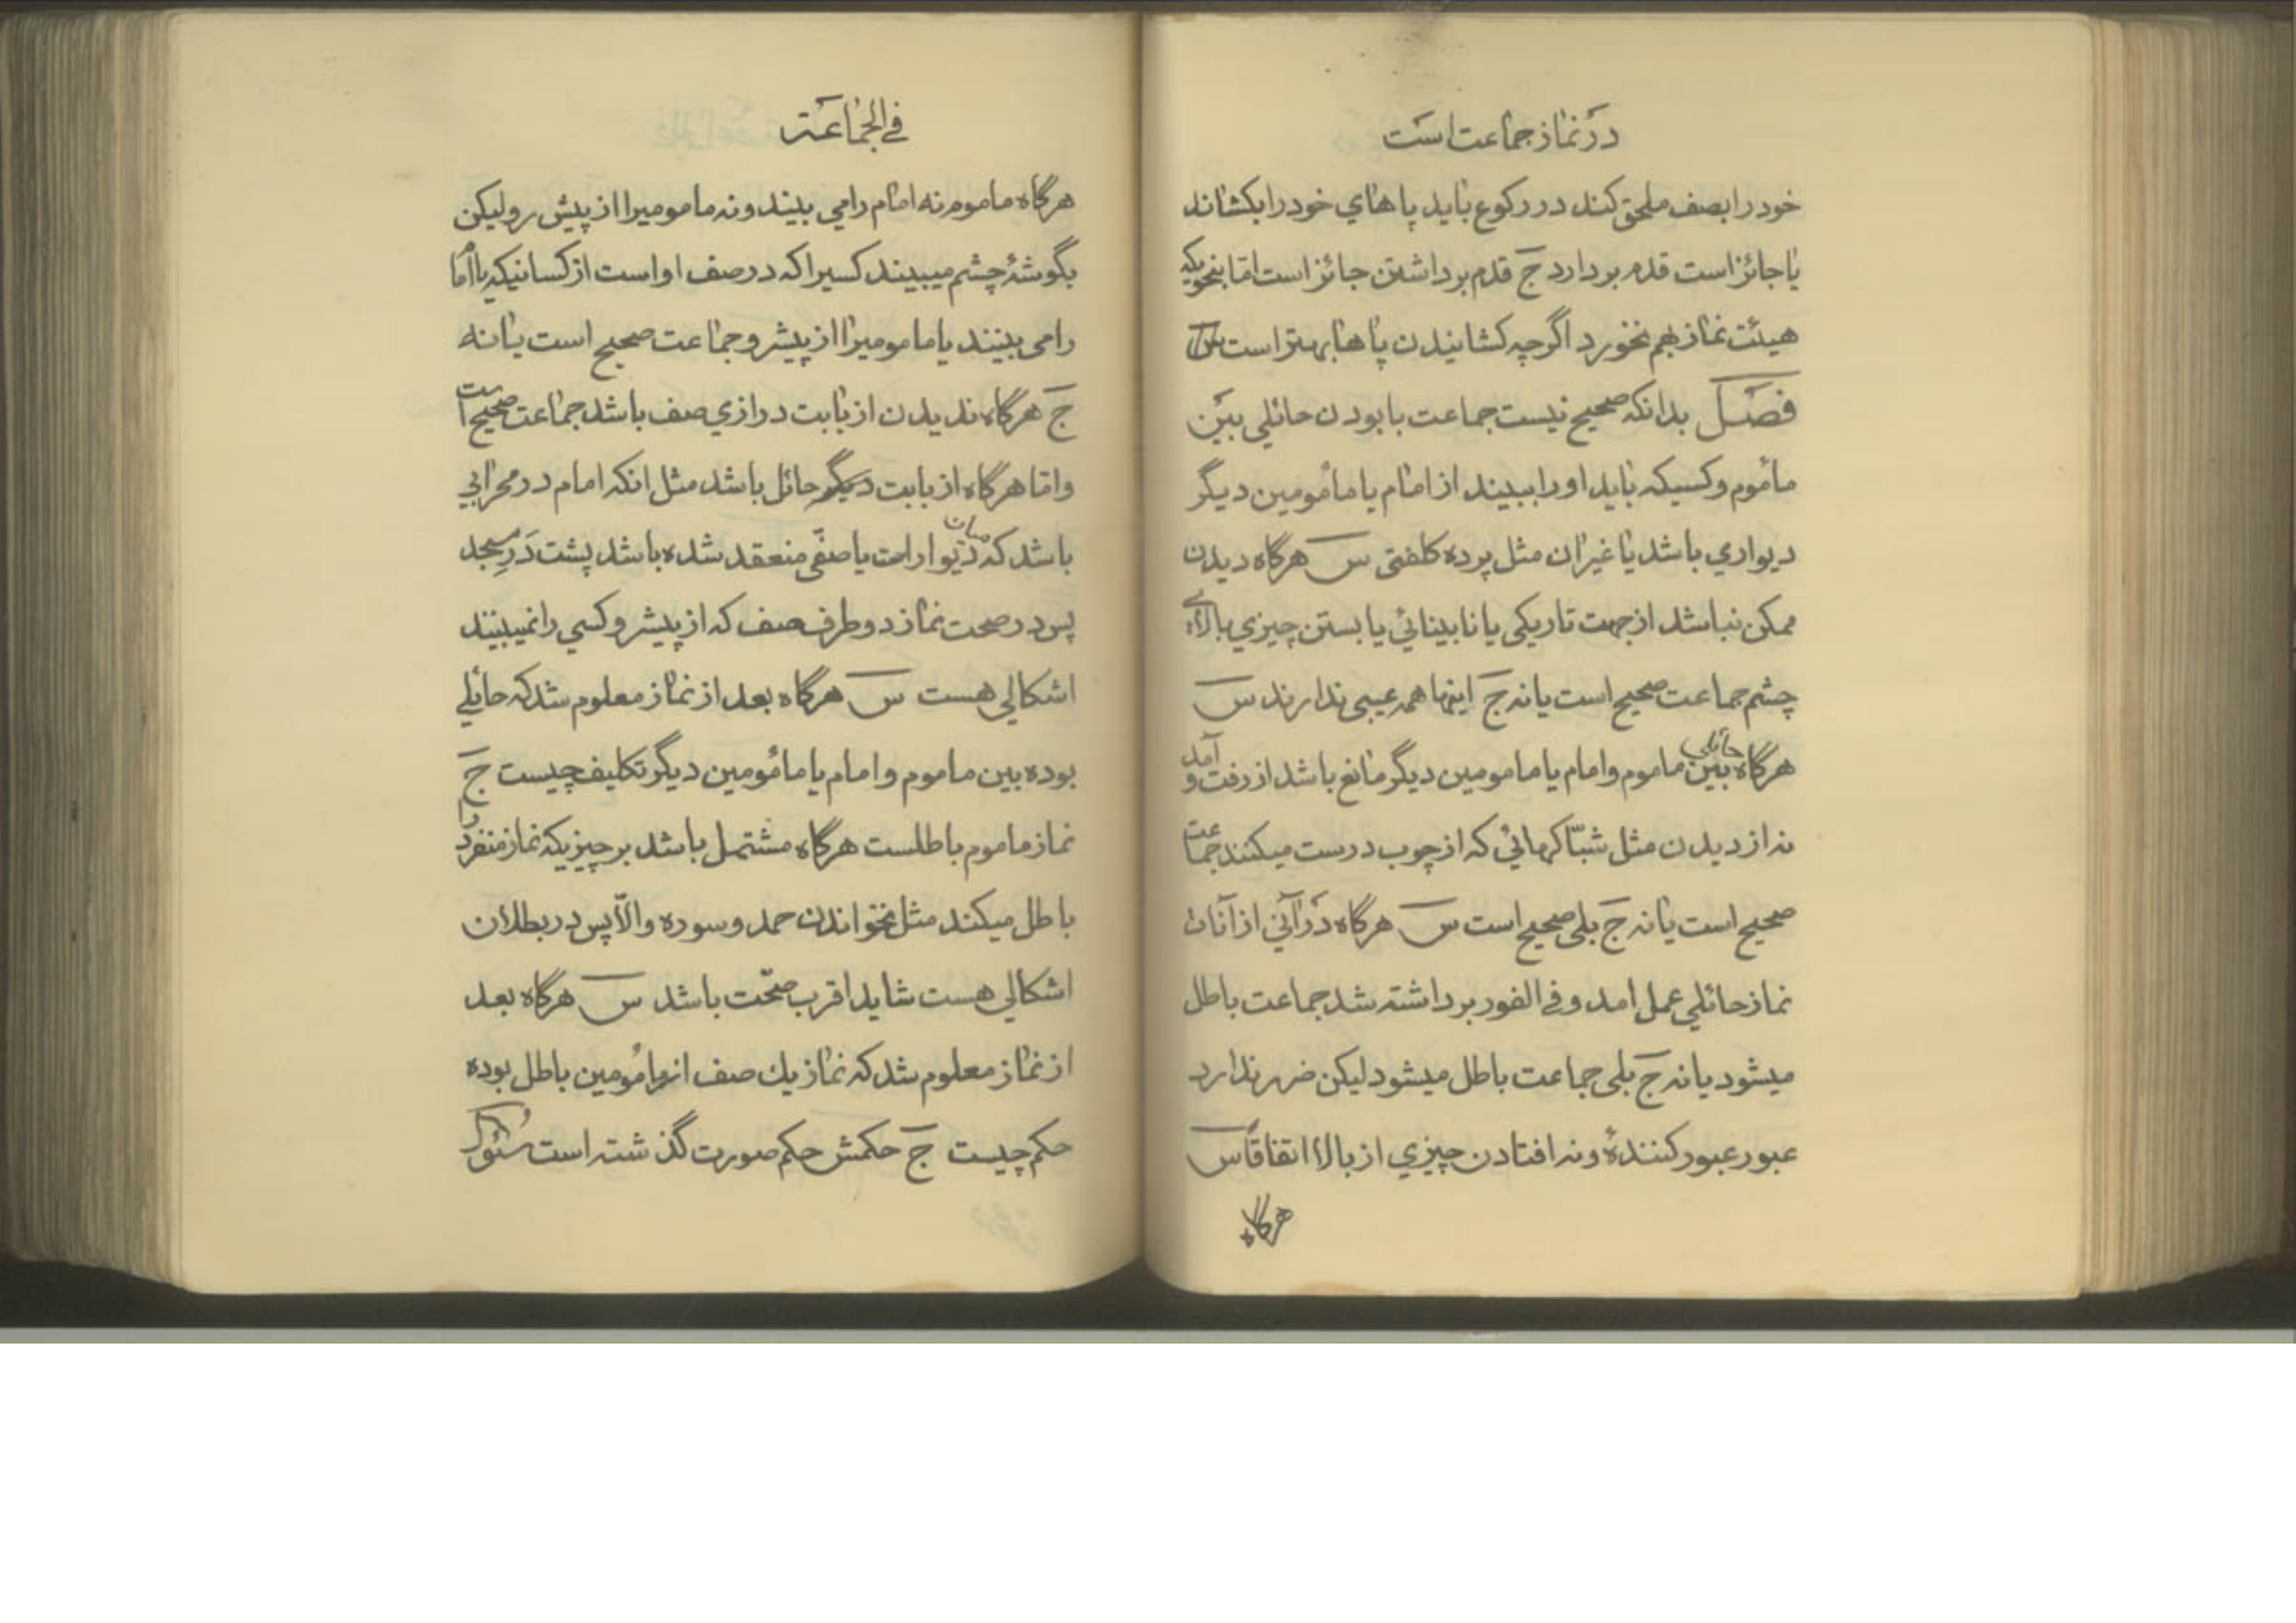 در نماز جماعت است
خود را بصف ملحق کند در رکوع باید پاهای خود را بکشاند
یا جائز است قدم بردارد ج قدم برداشتن جائز است اما بنحویکه
هیئت نماز بهم نخورد اگرچه کشانیدن پاها بهتر است
فصل بدانکه صحیح نیست جماعت با بودن حائلی بین
مأموم و کسیکه باید او را ببیند از امام یا مأمومین دیگر
دیواری باشد یا غیر ان مثل پرده کلفتی س هرگاه دیدن
ممکن نباشد از جهت تاریکی یا نابینائی یا بستن چیزی بالای
چشم جماعت صحیح است یا نه ج اینها همه عیبی ندارند س
هرگاه حائلی بین ماموم و امام یا مامومین دیگر مانع باشد از رفت و آمد
نه از دیدن مثل شبّاکهائی که از چوب درست میکنند جماعت
صحیح است یا نه ج بلی صحیح است س هرگاه در آنی از آنات
نماز حائلی عمل امد و فی الفور برداشته شد جماعت باطل
میشود یا نه ج بلی جماعت باطل میشود لیکن ضرر ندارد
عبور عبور کنندهٔ و نه افتادن چیزی از بالا اتفاقاً س
هرگاه
فی الجماعة
هرگاه ماموم نه امام را می بیند و نه مامومیرا از پیش رو لیکن
بگوشهٔ چشم میبیند کسیرا که در صف او است از کسانیکه یا امام
را می بینند یا مامومیرا از پیشرو جماعت صحیح است یا نه
ج هرگاه ندیدن از بابت درازی صف باشد جماعت صحیح است
و اما هرگاه از بابت دیگر حائل باشد مثل انکه امام در محرابی
باشد که میان دیوار است یا صفّی منعقد شده باشد پشت در مسجد
پس در صحت نماز دو طرف صف که از پیشرو کسی را نمیبینند
اشکالی هست س هرگاه بعد از نماز معلوم شد که حائلی
بوده بین ماموم و امام یا مأمومین دیگر تکلیف چیست ج
نماز ماموم باطلست هرگاه مشتمل باشد بر چیزیکه نماز منفرد را
باطل میکند مثل نخواندن حمد و سوره والّا پس در بطلان
اشکالی هست شاید اقرب صحّت باشد س هرگاه بعد
از نماز معلوم شد که نماز یك صف از مأمومین باطل بوده
حکم چیست ج حکمش حکم صورت گذشته است سئوال